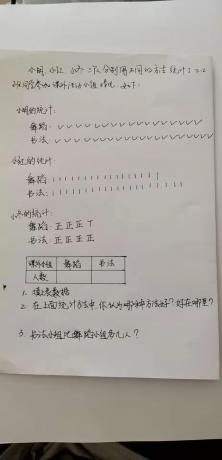 小明、小红、小东三人分别用不同的方法统计了二.2
班同学参加课外活动小组情况,如下:
小明的统计:
舞蹈: ✓✓✓✓✓✓✓✓✓✓✓✓✓✓✓✓✓
书法: ✓✓✓✓✓✓✓✓✓✓✓✓✓✓✓✓✓✓✓✓
小红的统计:
舞蹈: | | | | | | | | | | | | | | | | |
书法: | | | | | | | | | | | | | | | | | | | |
小东的统计:
舞蹈: 正正正丅
书法: 正正正正
课外小组 舞蹈 书法
人数
1. 填上表数据
2. 在上面统计方法中,你认为哪种方法好?好在哪里?
3. 书法小组比舞蹈小组多几人?